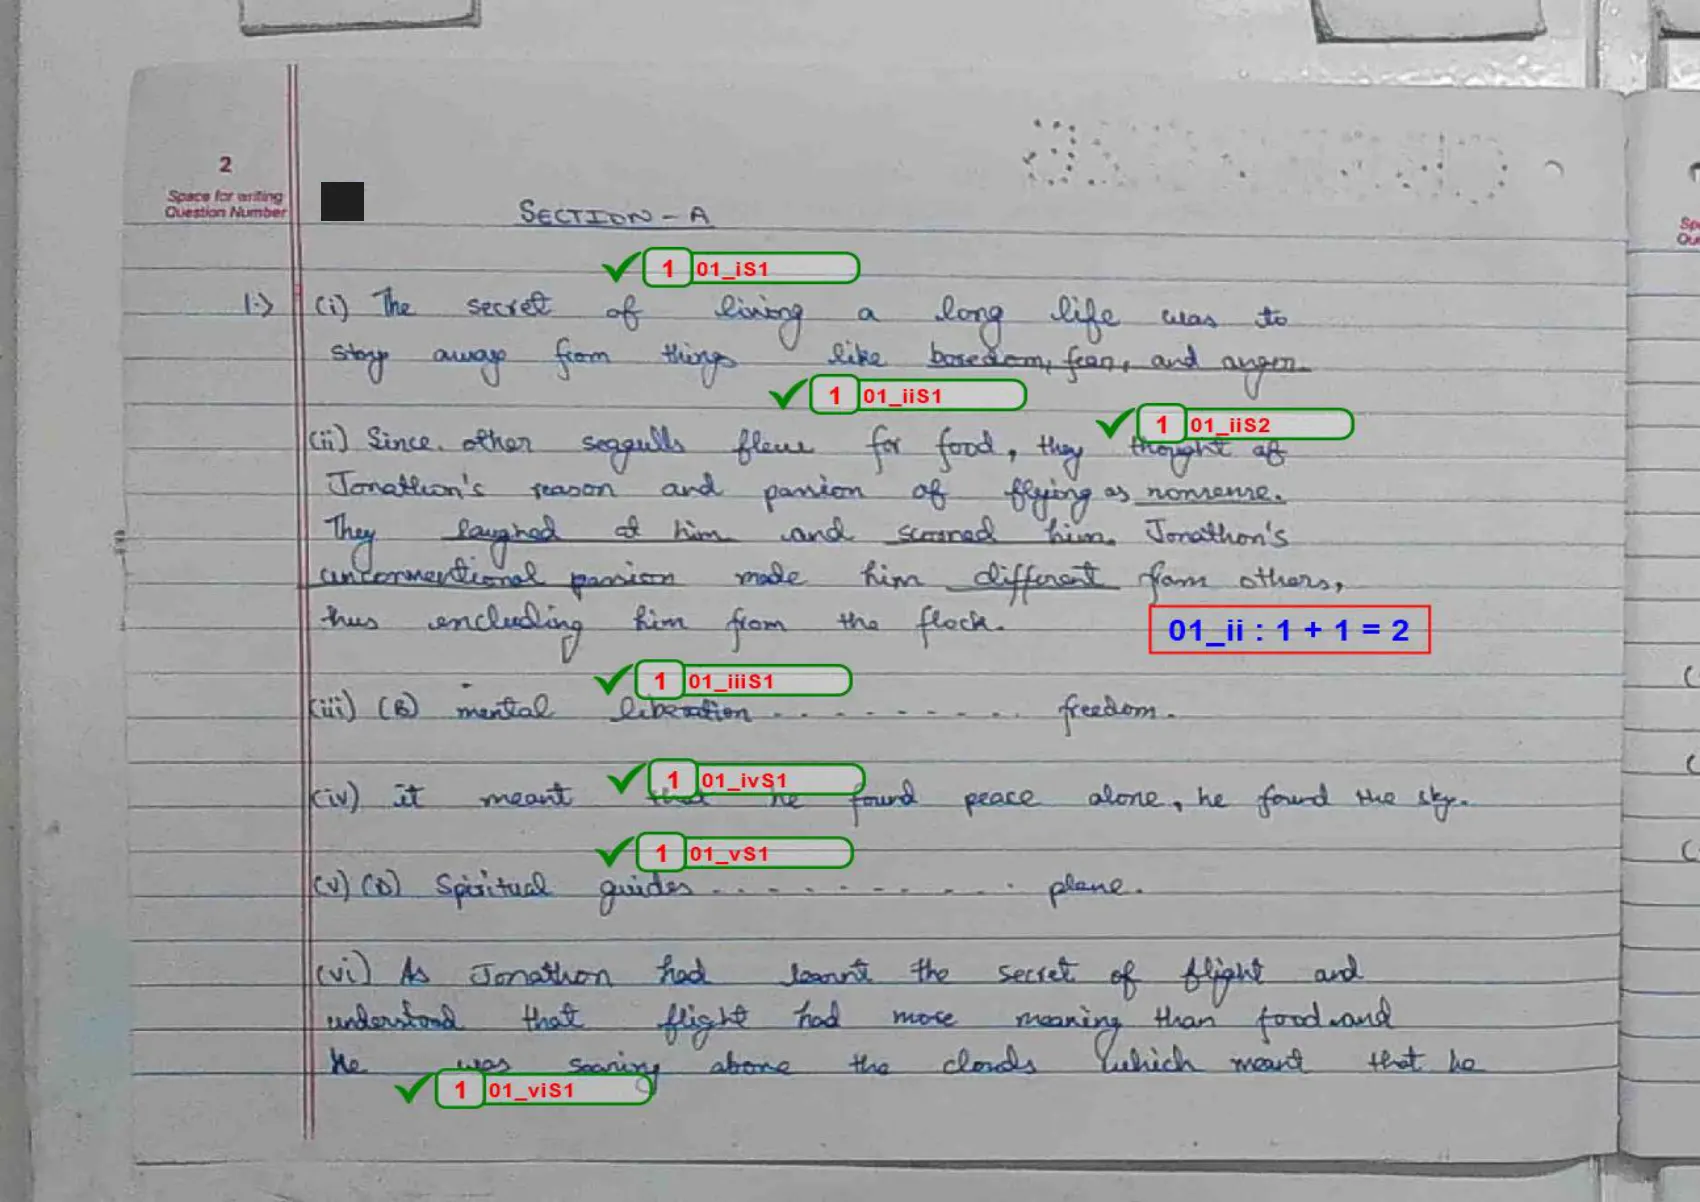 2
Space for writing
Question Number
SECTION - A
1 01_iS1
1.> (i) The secret of living a long life was to
stay away from things like boredom, fear, and anger.
1 01_iiS1
1 01_iiS2
(ii) Since other seagulls flew for food, they thought of
Jonathon's reason and passion of flying as nonsense.
They laughed at him and scorned him. Jonathon's
unconventional passion made him different from others,
thus encluding him from the flock.
01_ii : 1 + 1 = 2
1 01_iiiS1
(iii) (B) mental liberation .......... freedom.
1 01_ivS1
(iv) it meant that he found peace alone, he found the sky.
1 01_vS1
(v) (D) Spiritual guides .......... plane.
(vi) As Jonathon had learnt the secret of flight and
understood that flight had more meaning than food and
he was soaring above the clouds which meant that he
1 01_viS1